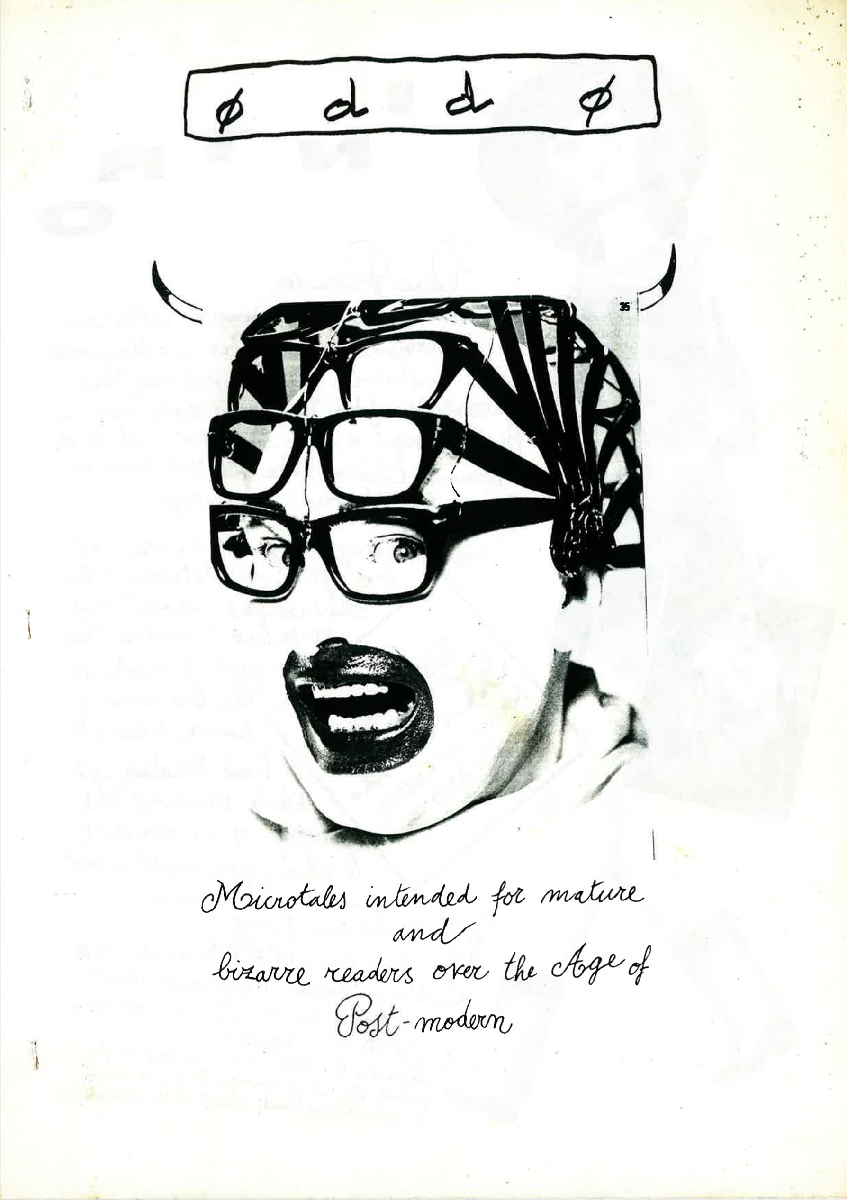 ø d d ø
35
Microtales intended for mature
and
bizarre readers over the Age of
Post-modern